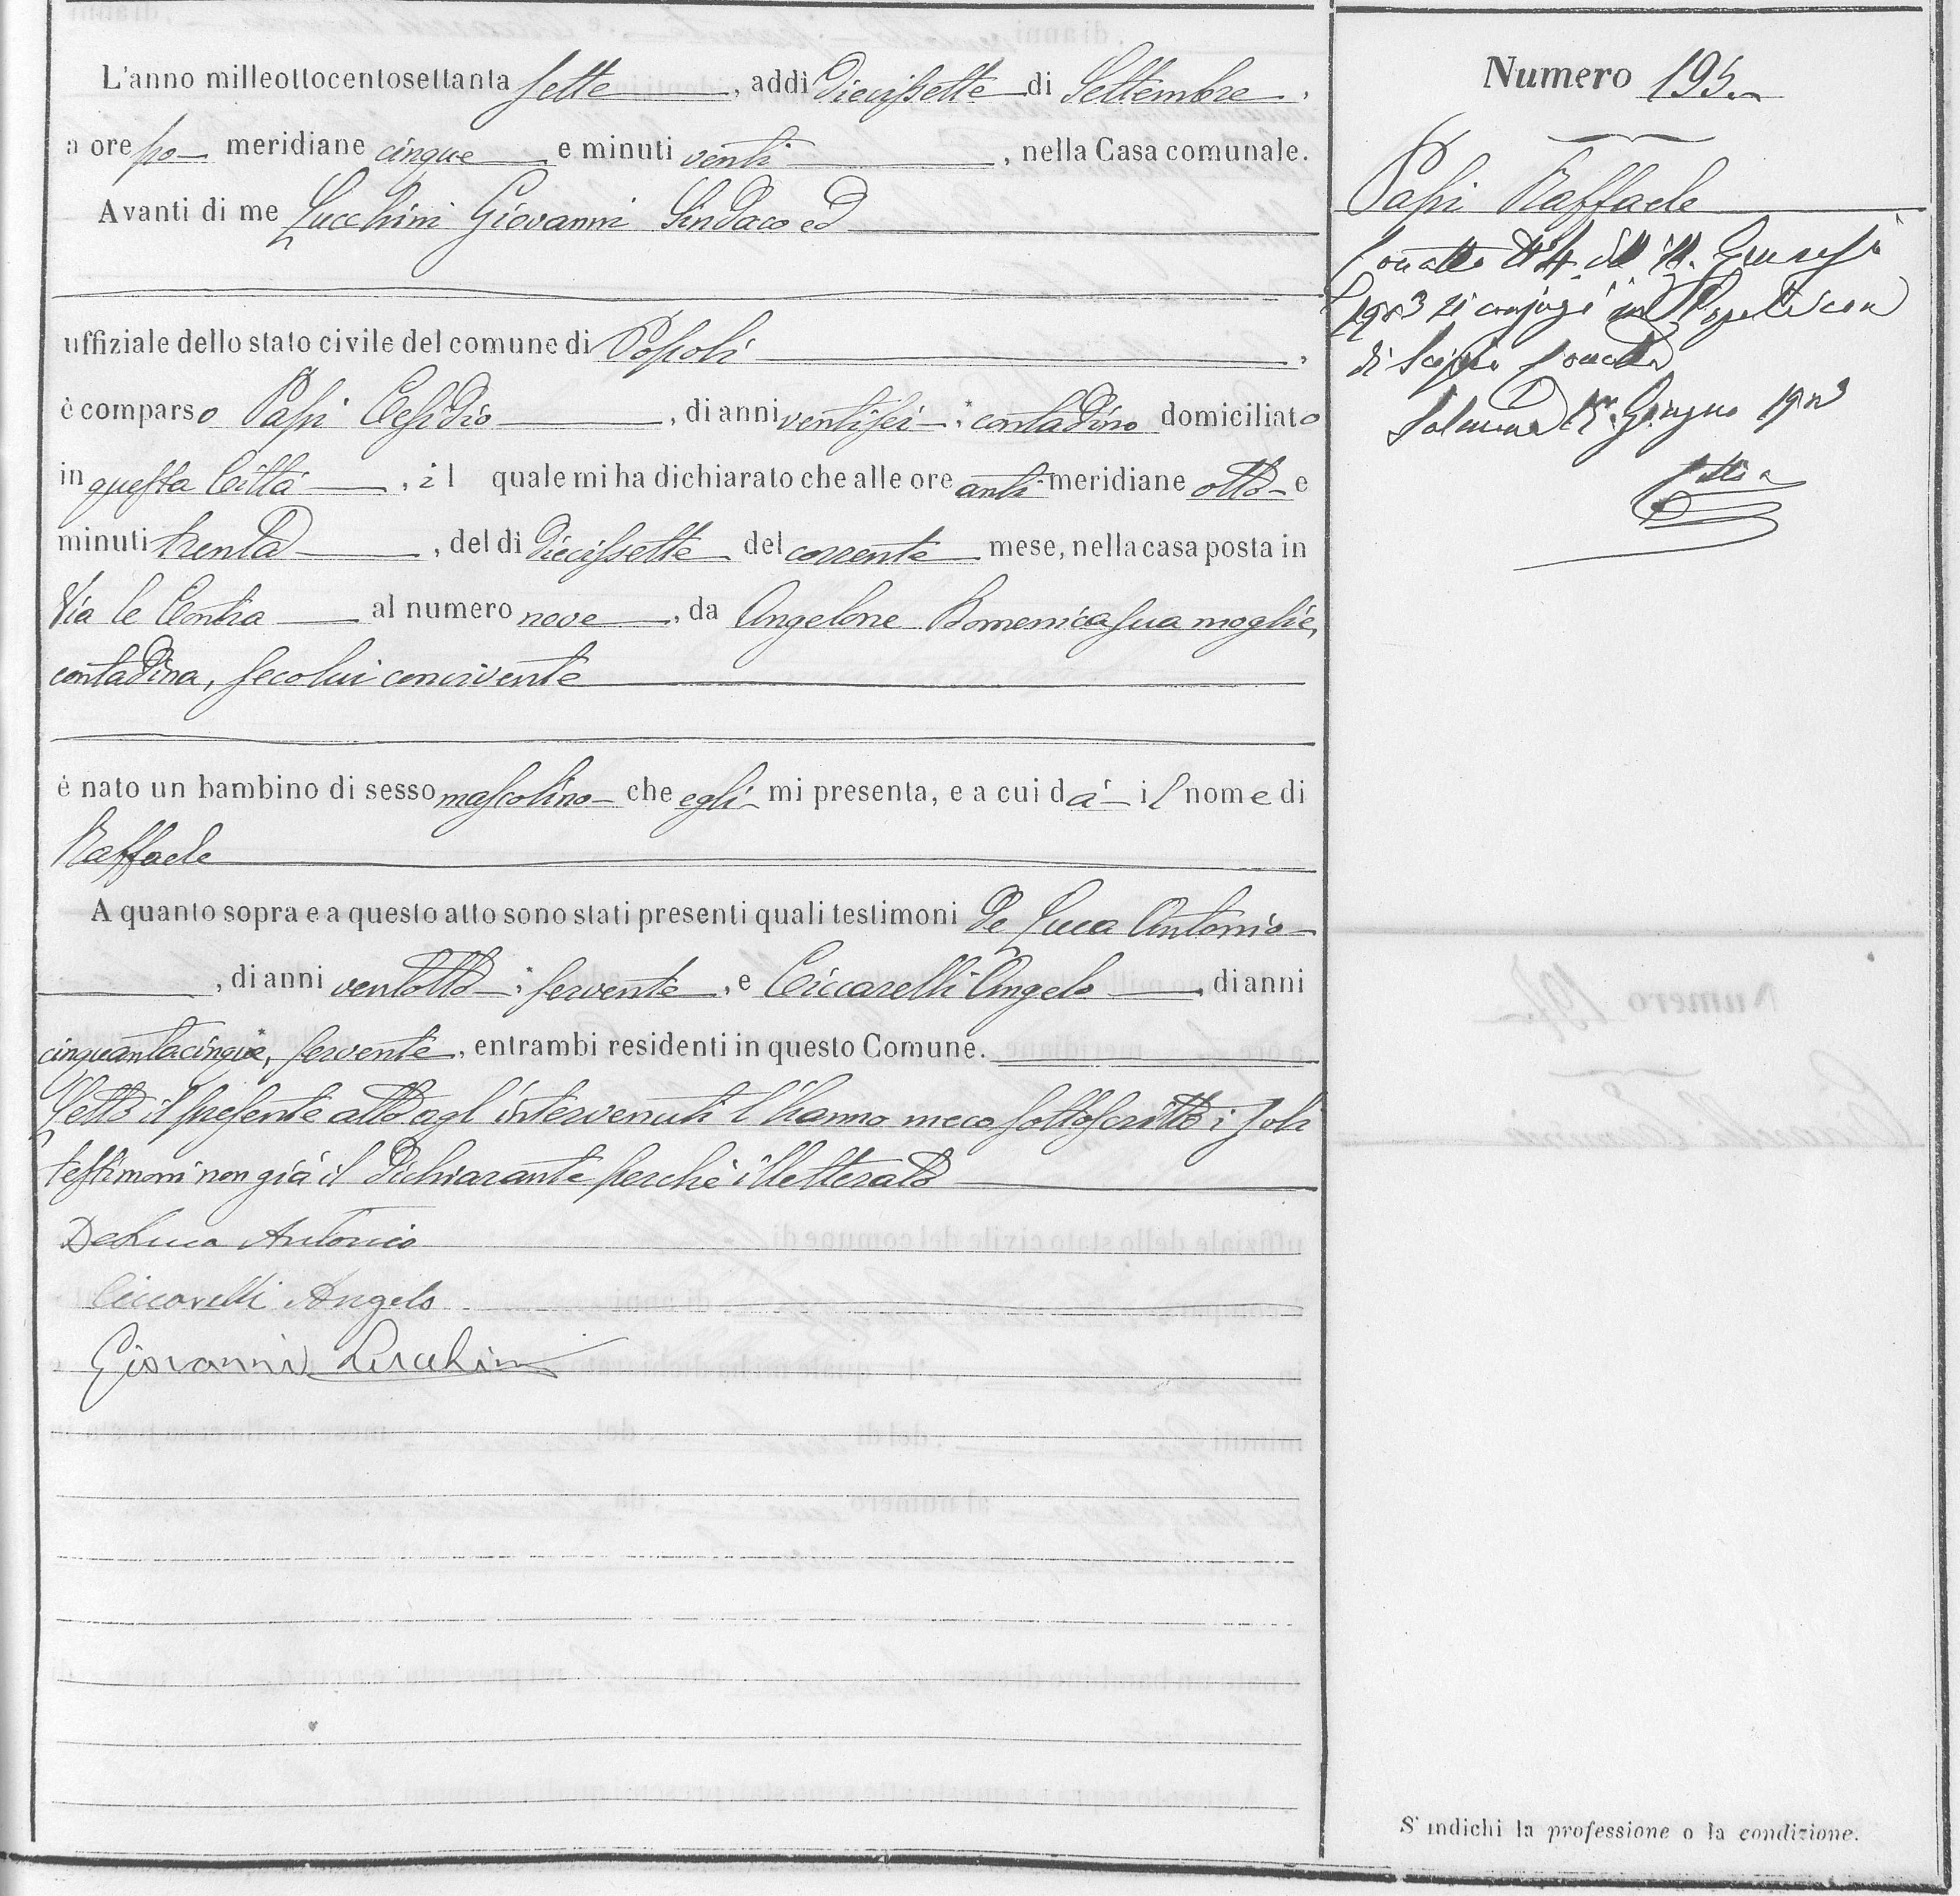 L'anno milleottocentosettanta sette, addì diecissette di Settembre,
a ore po meridiane cinque e minuti venti, nella Casa comunale.
Avanti di me Lucchini Giovanni Sindaco ed
uffiziale dello stato civile del comune di Popoli,
è comparso Cesidio, di anni ventisei * contadino domiciliato
in questa Città, il quale mi ha dichiarato che alle ore anti meridiane otto e
minuti trenta, del dì diecissette del corrente mese, nella casa posta in
Via le al numero nove, da Angelone Domenica sua moglie,
contadina, seco lui convivente
è nato un bambino di sesso mascolino che egli mi presenta, e a cui dà il nome di
Raffaele
A quanto sopra e a questo atto sono stati presenti quali testimoni De Luca Antonio
, di anni ventotto * servente, e Ciccarelli Angelo, di anni
cinquantacinque * servente, entrambi residenti in questo Comune.
Letto il presente atto agl'intervenuti l'hanno meco sottoscritto i soli
testimoni non già il dichiarante perchè illetterato
DeLuca Antonio
Ciccarelli Angelo
Giovanni Lucchini
Numero 195
Raffaele
1903
di
Giugno 1903
S'indichi la professione o la condizione.